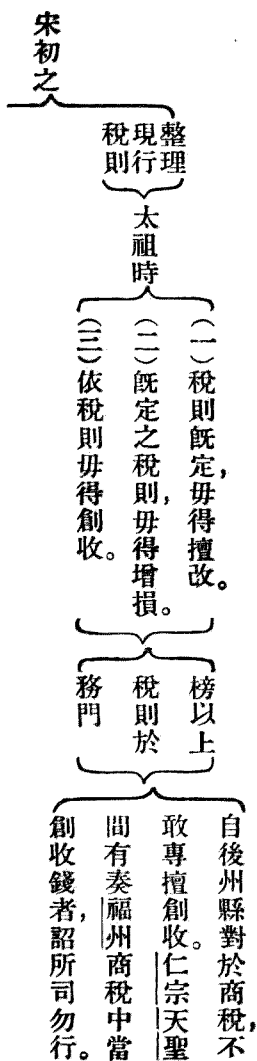 宋初之
整理
現行
稅則
太祖時
（一）稅則旣定，毋得擅改。
（二）旣定之稅則，毋得增損。
（三）依稅則毋得創收。
榜以上
稅則於
務門
自後州縣對於商稅，不
敢專擅創收。仁宗天聖
間有奏福州商稅中當
創收錢者，詔所司勿行。